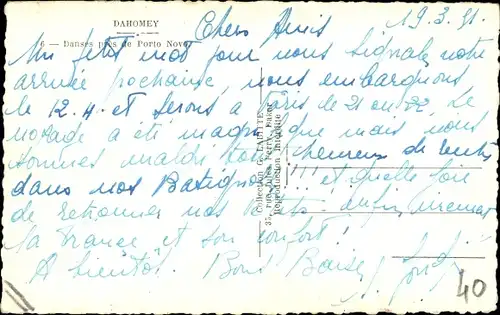 DAHOMEY
6 — Danses près de Porto Novo
Chers Amis
19.3.51.
Un petit mot pour vous signaler notre
arrivée prochaine, nous embarquons
le 12.4 et serons à Paris le 21 ou 22. Le
voyage a été magnifique mais nous
sommes malgré tout heureux de rentrer
dans nos Batignolles !!! et quelle joie
de retrouver nos enfin, vivement
la France et son confort !
A bientôt. Bons Baisers
Collection G. LABITTE
35, rue Jules Ferry, Dakar
Reproduction Interdite
40